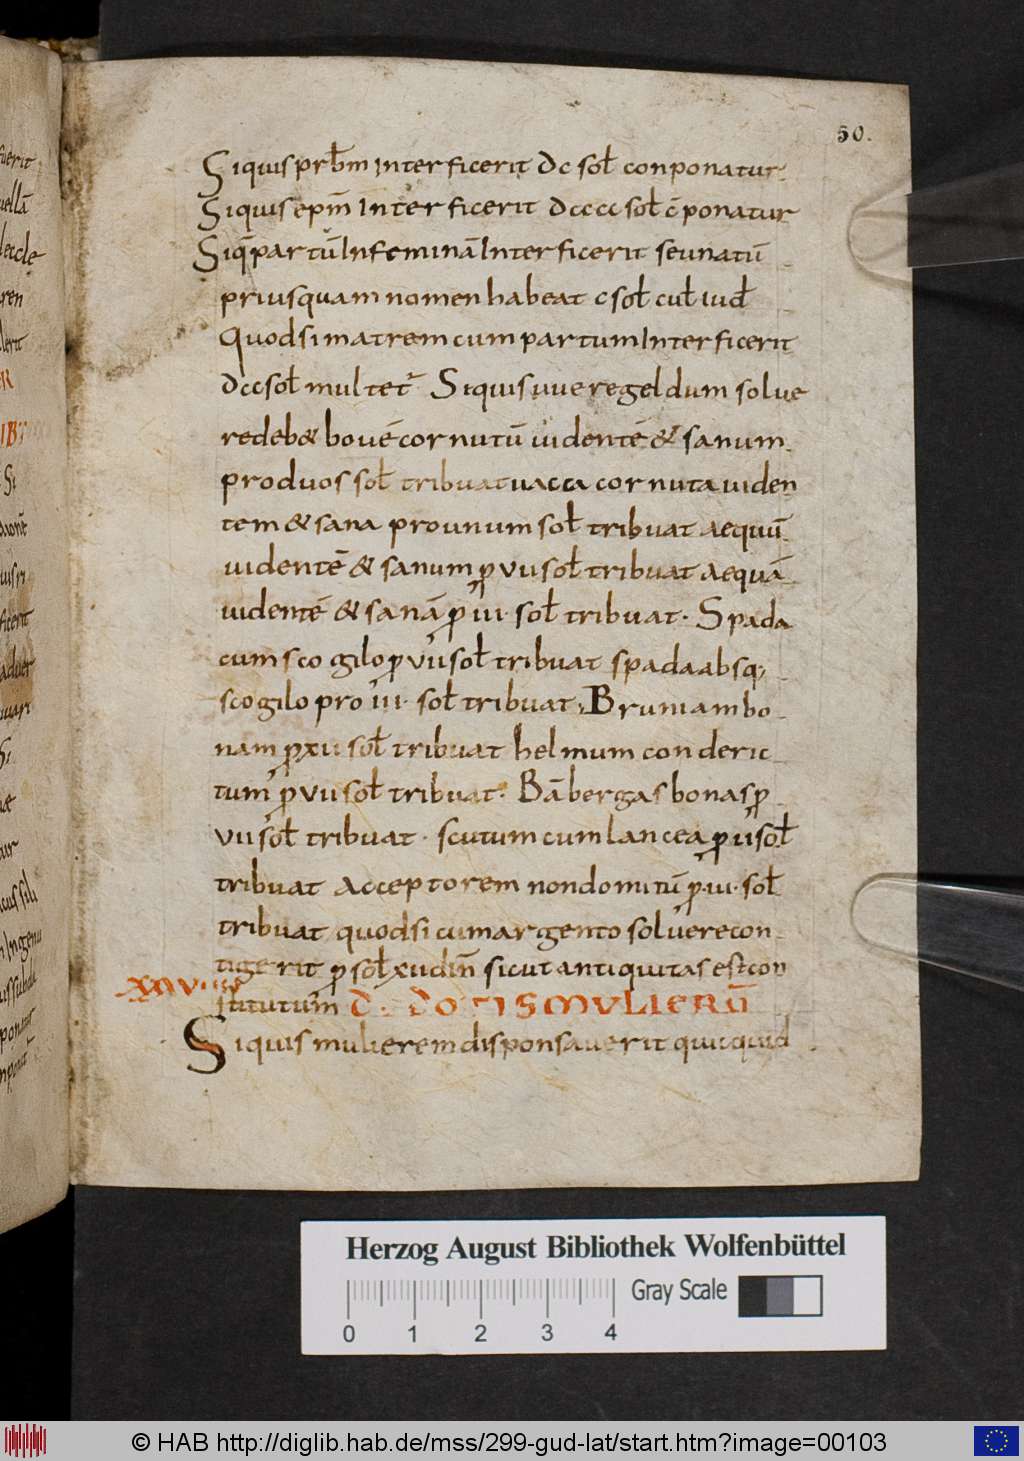 50.
Siquis prb̄m interficerit dc sol̄ conponatur
Siquis ep̄m interficerit dcccc sol̄ c̄ponatur
Siq̄ partū infeminā interficerit seunatū
priusquam nomen habeat c sol̄ cul̄ iud̄
Quodsi matrem cum partum interficerit
dcc sol̄ multet᷑ Siquis uueregeldum solue
re deb& bouē cornutū uidentē & sanum
pro duos sol̄ tribuat uacca cornuta uiden
tem & sana pro unum sol̄ tribuat aequū
uidentē & sanum ꝓ vii sol̄ tribuat aequā
uidentē & sanā ꝓ iii· sol̄ tribuat· Spada
cum scogilo ꝓ vii sol̄ tribuat spada absq;
scogilo pro iii· sol̄ tribuat; Bruniam bo
nam ꝓ xii sol̄ tribuat helmum con deric
tum ꝓ vii sol̄ tribuat· Bābergas bonas ꝓ
vii sol̄ tribuat· scutum cum lancea ꝓ ii sol̄
tribuat acceptorem nondomitū ꝓ iii· sol̄
tribuat quodsi cum argento soluere con
tigerit ꝓ sol̄ xii din̄ sicut antiquitas est con
stitutum D. DOTIS MULIERŪ
Siquis mulierem disponsauerit quicquid
Herzog August Bibliothek Wolfenbüttel
Gray Scale
0 1 2 3 4
© HAB http://diglib.hab.de/mss/299-gud-lat/start.htm?image=00103